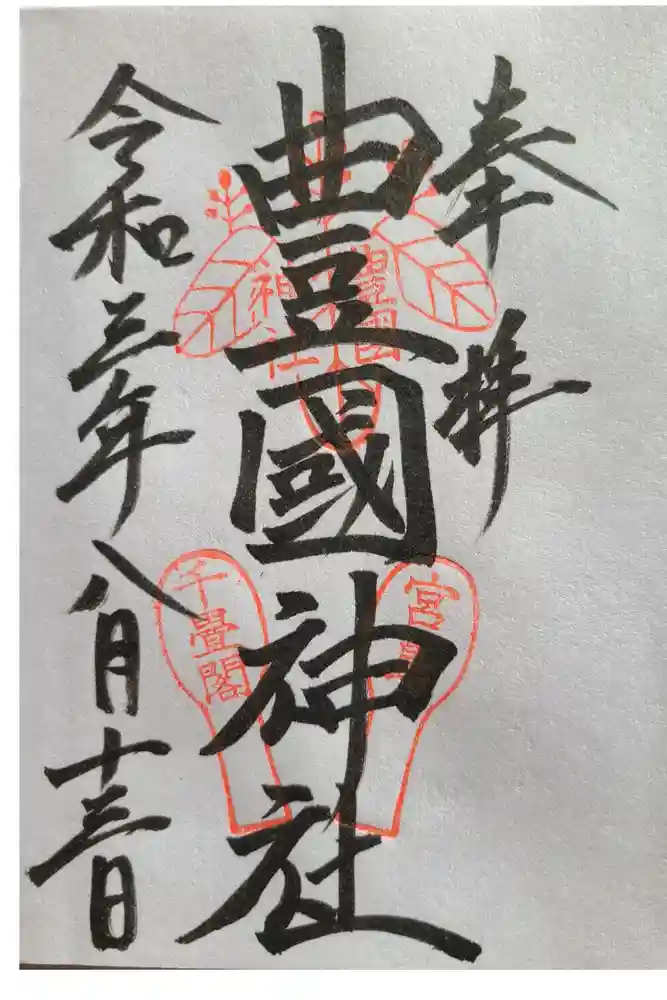 奉拝
豊國神社
令和三年八月十三日
豊國
神社
千畳閣
宮